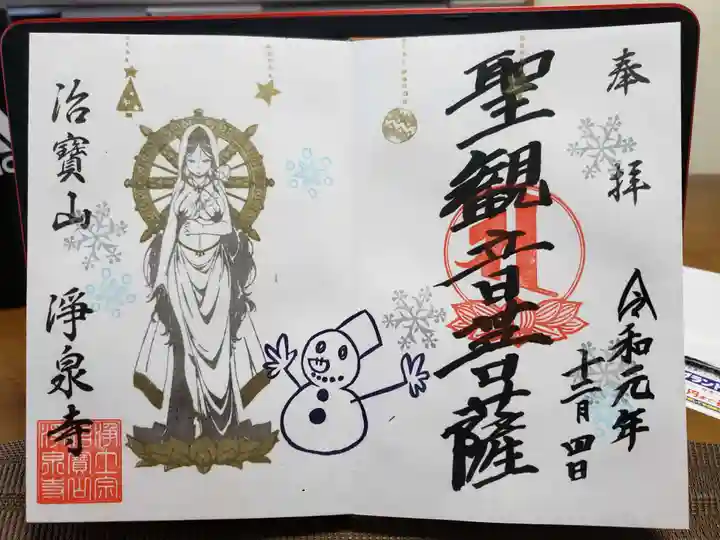 奉拝
令和元年
十二月四日
聖観音菩薩
治寶山 淨泉寺
浄土宗
治寶山
淨泉寺
ブランド